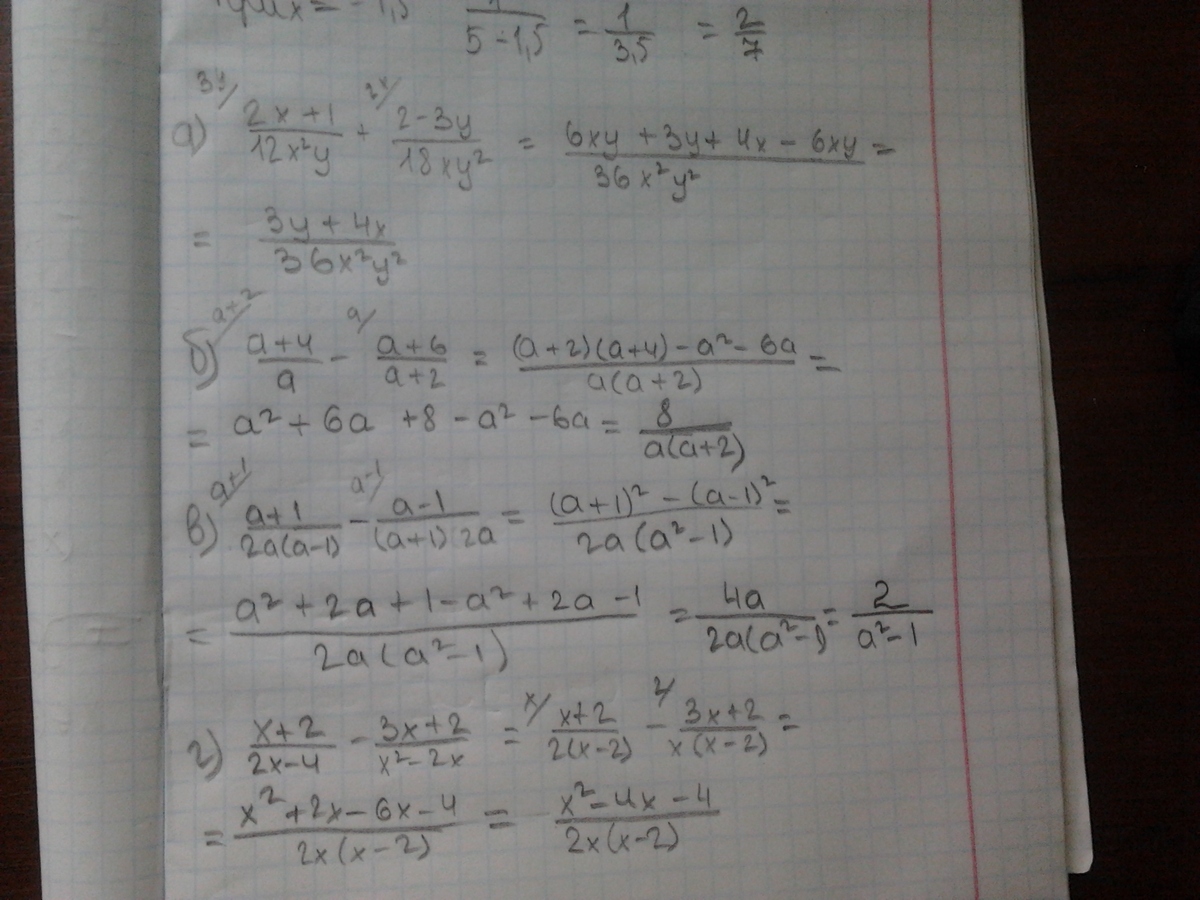 при x = -1,5 1/(5-1,5) = 1/3,5 = 2/7
а) 3y/ (2x+1)/(12x²y) + 2x/ (2-3y)/(18xy²) = (6xy+3y+4x-6xy)/(36x²y²) =
= (3y+4x)/(36x²y²)
б) a+2/ (a+4)/a - a/ (a+6)/(a+2) = ((a+2)(a+4)-a²-6a)/(a(a+2)) =
= a²+6a +8-a²-6a = 8/(a(a+2))
в) a+1/ (a+1)/(2a(a-1)) - a-1/ (a-1)/((a+1)2a) = ((a+1)²-(a-1)²)/(2a(a²-1)) =
= (a²+2a+1-a²+2a-1)/(2a(a²-1)) = 4a/(2a(a²-1)) = 2/(a²-1)
г) (x+2)/(2x-4) - (3x+2)/(x²-2x) = x/ (x+2)/(2(x-2)) - 2/ (3x+2)/(x(x-2)) =
= (x²+2x-6x-4)/(2x(x-2)) = (x²-4x-4)/(2x(x-2))